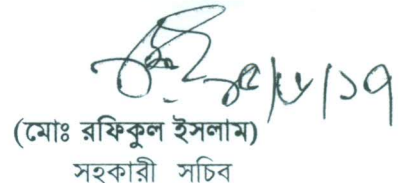 (মোঃ রফিকুল ইসলাম)
সহকারী সচিব